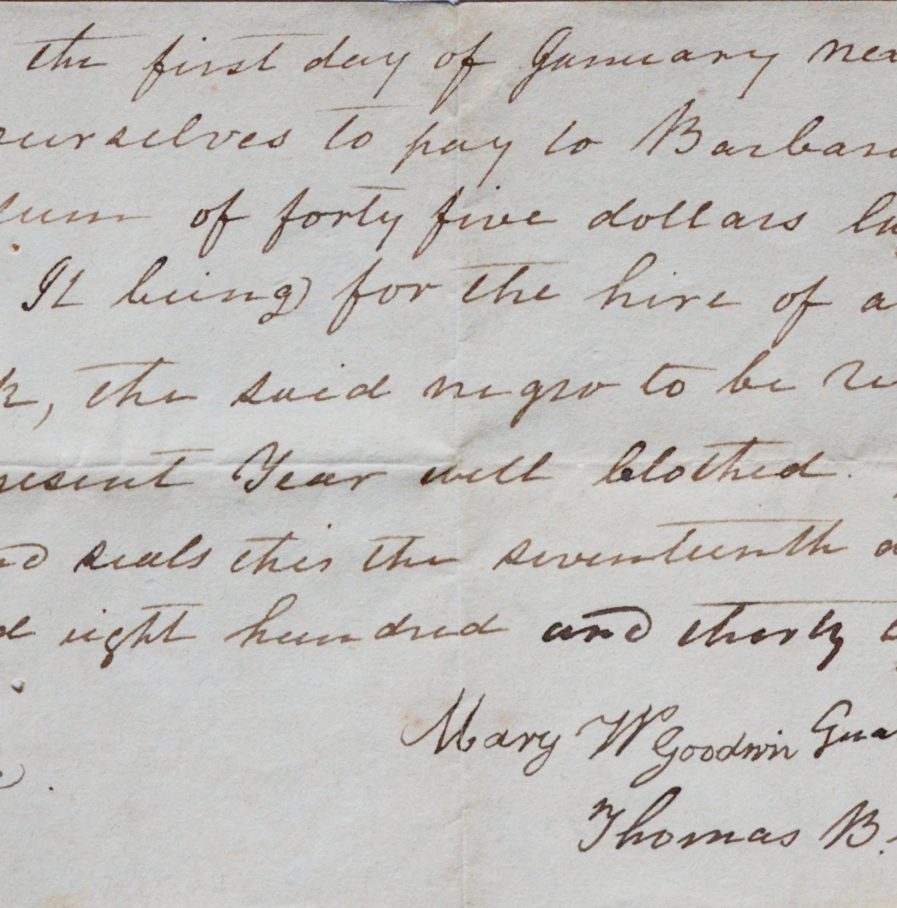 the first day of January nex
ourselves to pay to Barbara
sum of forty five dollars
It being for the hire of a
the said negro to be
resent Year well clothed.
nd seals this the seventeenth
d eight hundred and thirty
Mary W Goodwin Gua
Thomas B.